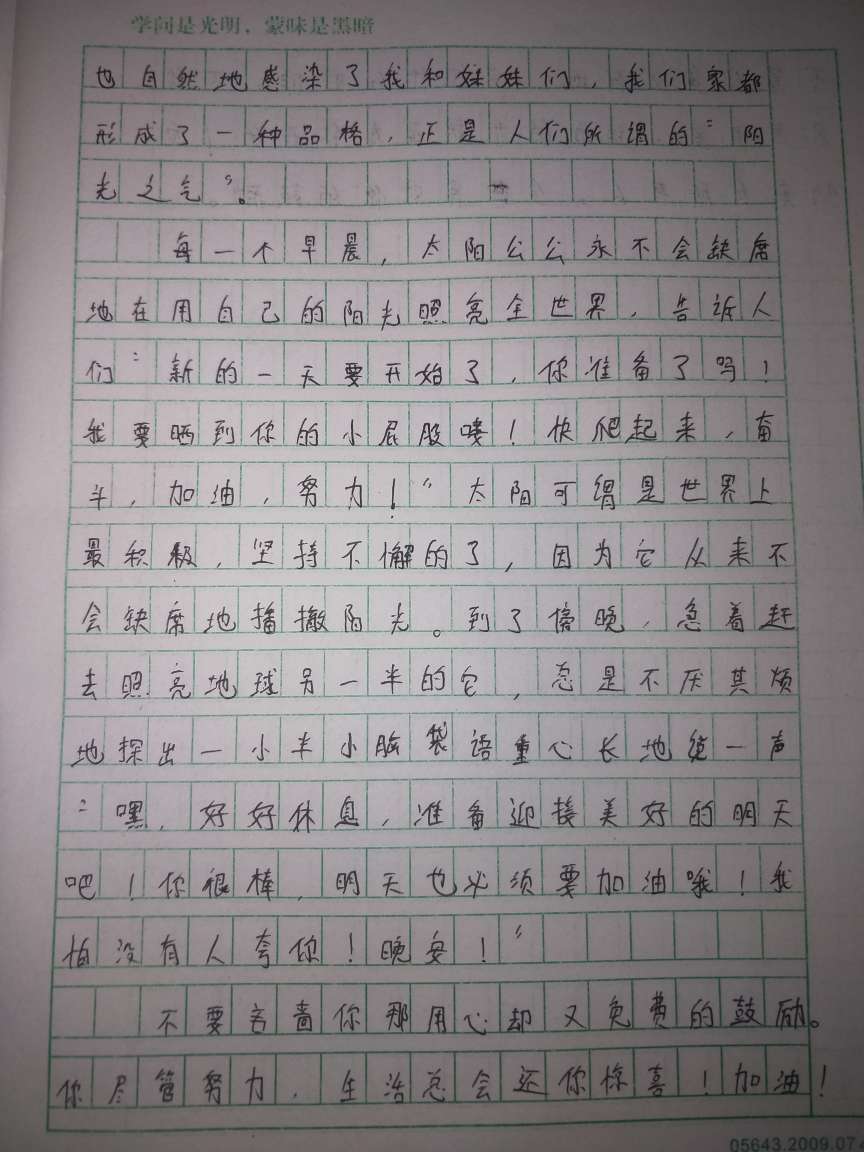 学问是光明，蒙昧是黑暗
也自然地感染了我和妹妹们，我们家都
形成了一种品格，正是人们所谓的“阳
光之气”。
每一个早晨，太阳公公永不会缺席
地在用自己的阳光照亮全世界，告诉人
们“新的一天要开始了，你准备了吗！
我要晒到你的小屁股喽！快爬起来，奋
斗，加油，努力！”太阳可谓是世界上
最积极，坚持不懈的了，因为它从来不
会缺席地播撒阳光。到了傍晚，急着赶
去照亮地球另一半的它，总是不厌其烦
地探出一小半小脑袋语重心长地说一声
“嘿，好好休息，准备迎接美好的明天
吧！你很棒，明天也必须要加油哦！我
怕没有人夸你！晚安！”
不要吝啬你那用心却又免费的鼓励。
你尽管努力，生活总会还你惊喜！加油！
05643.2009.07.